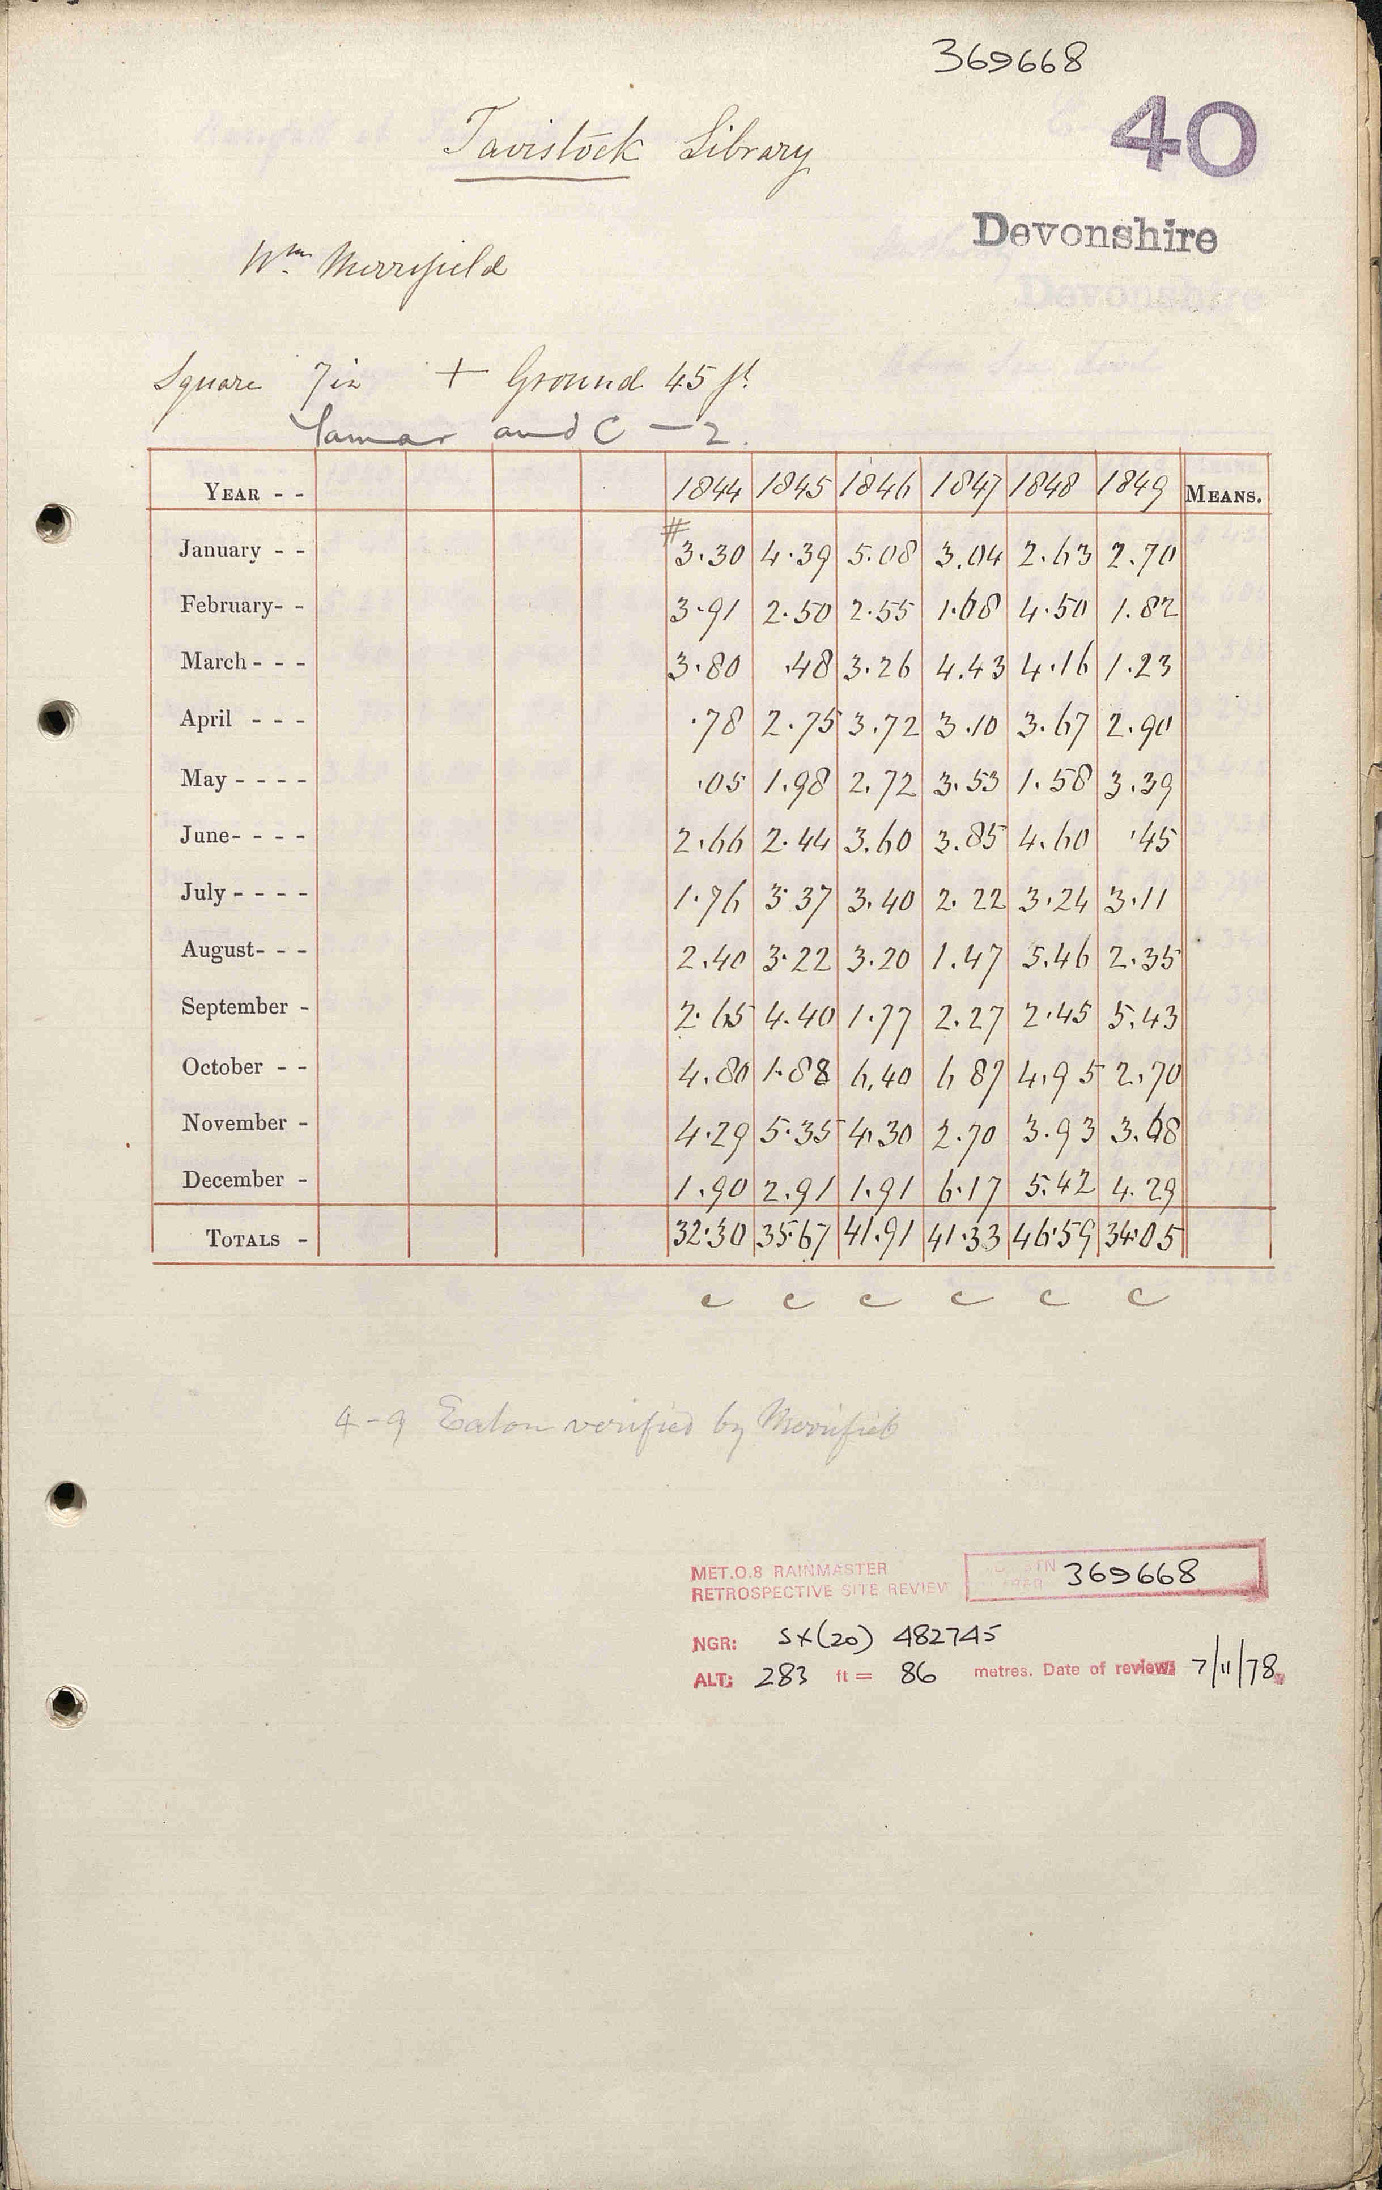 369668
40
Tavistock Library
Devonshire
Wm Merrifield
Square 7in + Ground 45 ft
Tamar and C — 2.
YEAR - - 1844 1845 1846 1847 1848 1849 MEANS.
#
January - - 3.30 4.39 5.08 3.04 2.63 2.70
February- - 3.91 2.50 2.55 1.68 4.50 1.82
March - - - 3.80 .48 3.26 4.43 4.16 1.23
April - - - .78 2.75 3.72 3.10 3.67 2.90
May - - - - .05 1.98 2.72 3.53 1.58 3.39
June- - - - 2.66 2.44 3.60 3.85 4.60 .45
July - - - - 1.76 3.37 3.40 2.22 3.24 3.11
August- - - 2.40 3.22 3.20 1.47 5.46 2.35
September - 2.65 4.40 1.77 2.27 2.45 5.43
October - - 4.80 1.88 6.40 6 87 4.95 2.70
November - 4.29 5.35 4.30 2.70 3.93 3.68
December - 1.90 2.91 1.91 6.17 5.42 4.29
TOTALS - 32.30 35.67 41.91 41.33 46.59 34.05
c c c c c c
4-9 Eaton verified by Merrifield
MET.O.8 RAINMASTER
RETROSPECTIVE SITE REVIEW
STN 369668
NGR: SX(20) 482745
ALT: 283 ft = 86 metres. Date of review: 7/11/78